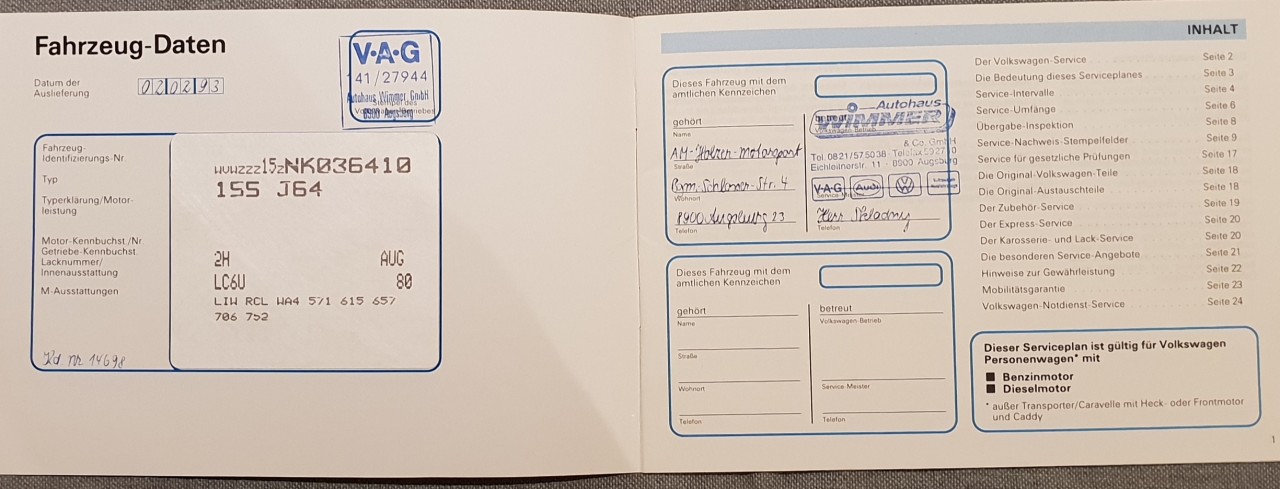 Fahrzeug-Daten
Datum der
Auslieferung
020293
V·A·G
141/27944
Autohaus Wimmer GmbH
Stempel des
8900 Augsburg
Fahrzeug-
Identifizierungs-Nr.
Typ
Typerklärung/Motor-
leistung
Motor-Kennbuchst./Nr.
Getriebe-Kennbuchst.
Lacknummer/
Innenausstattung
M-Ausstattungen
WVWZZZ15ZNK036410
155 J64
2H AUG
LC6U 80
LIW RCL WA4 571 615 657
706 752
Kd. Nr. 14698
INHALT
Dieses Fahrzeug mit dem
amtlichen Kennzeichen
gehört
Name
AH-Holzer-Motorsport
Straße
Wohnort
8900 Augsburg 23
Telefon
Autohaus
WIMMER
betreut
Volkswagen-Betrieb
& Co. GmbH
Tel. 0821/575038 · Telefax 592710
Eichleitnerstr. 11 · 8900 Augsburg
V·A·G Audi VW
Service Meister
Herr Skladny
Telefon
Dieses Fahrzeug mit dem
amtlichen Kennzeichen
gehört
Name
Straße
Wohnort
Telefon
betreut
Volkswagen-Betrieb
Service Meister
Telefon
Der Volkswagen-Service Seite 2
Die Bedeutung dieses Serviceplanes Seite 3
Service-Intervalle Seite 4
Service-Umfänge Seite 6
Übergabe-Inspektion Seite 8
Service-Nachweis-Stempelfelder Seite 9
Service für gesetzliche Prüfungen Seite 17
Die Original-Volkswagen-Teile Seite 18
Die Original-Austauschteile Seite 18
Der Zubehör-Service Seite 19
Der Express-Service Seite 20
Der Karosserie- und Lack-Service Seite 20
Die besonderen Service-Angebote Seite 21
Hinweise zur Gewährleistung Seite 22
Mobilitätsgarantie Seite 23
Volkswagen-Notdienst-Service Seite 24
Dieser Serviceplan ist gültig für Volkswagen
Personenwagen* mit
Benzinmotor
Dieselmotor
* außer Transporter/Caravelle mit Heck- oder Frontmotor
und Caddy
1